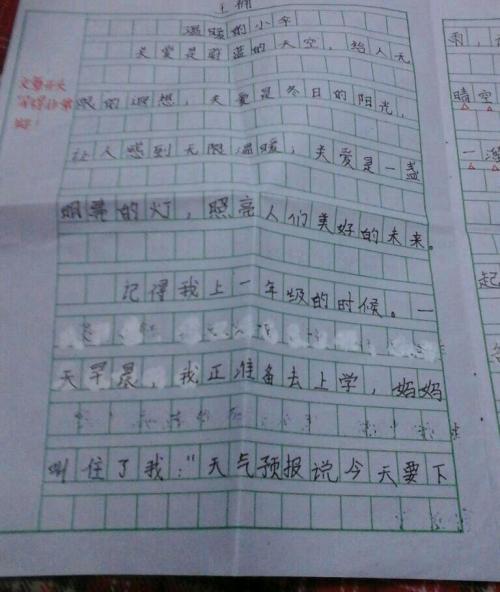 温暖的小伞
关爱是蔚蓝的天空，给人无
限的遐想，关爱是冬日的阳光，
让人感到无限温暖，关爱是一盏
明亮的灯，照亮人们美好的未来。
记得我上一年级的时候。一
天早晨，我正准备去上学，妈妈
叫住了我："天气预报说今天要下
晴空
一
起